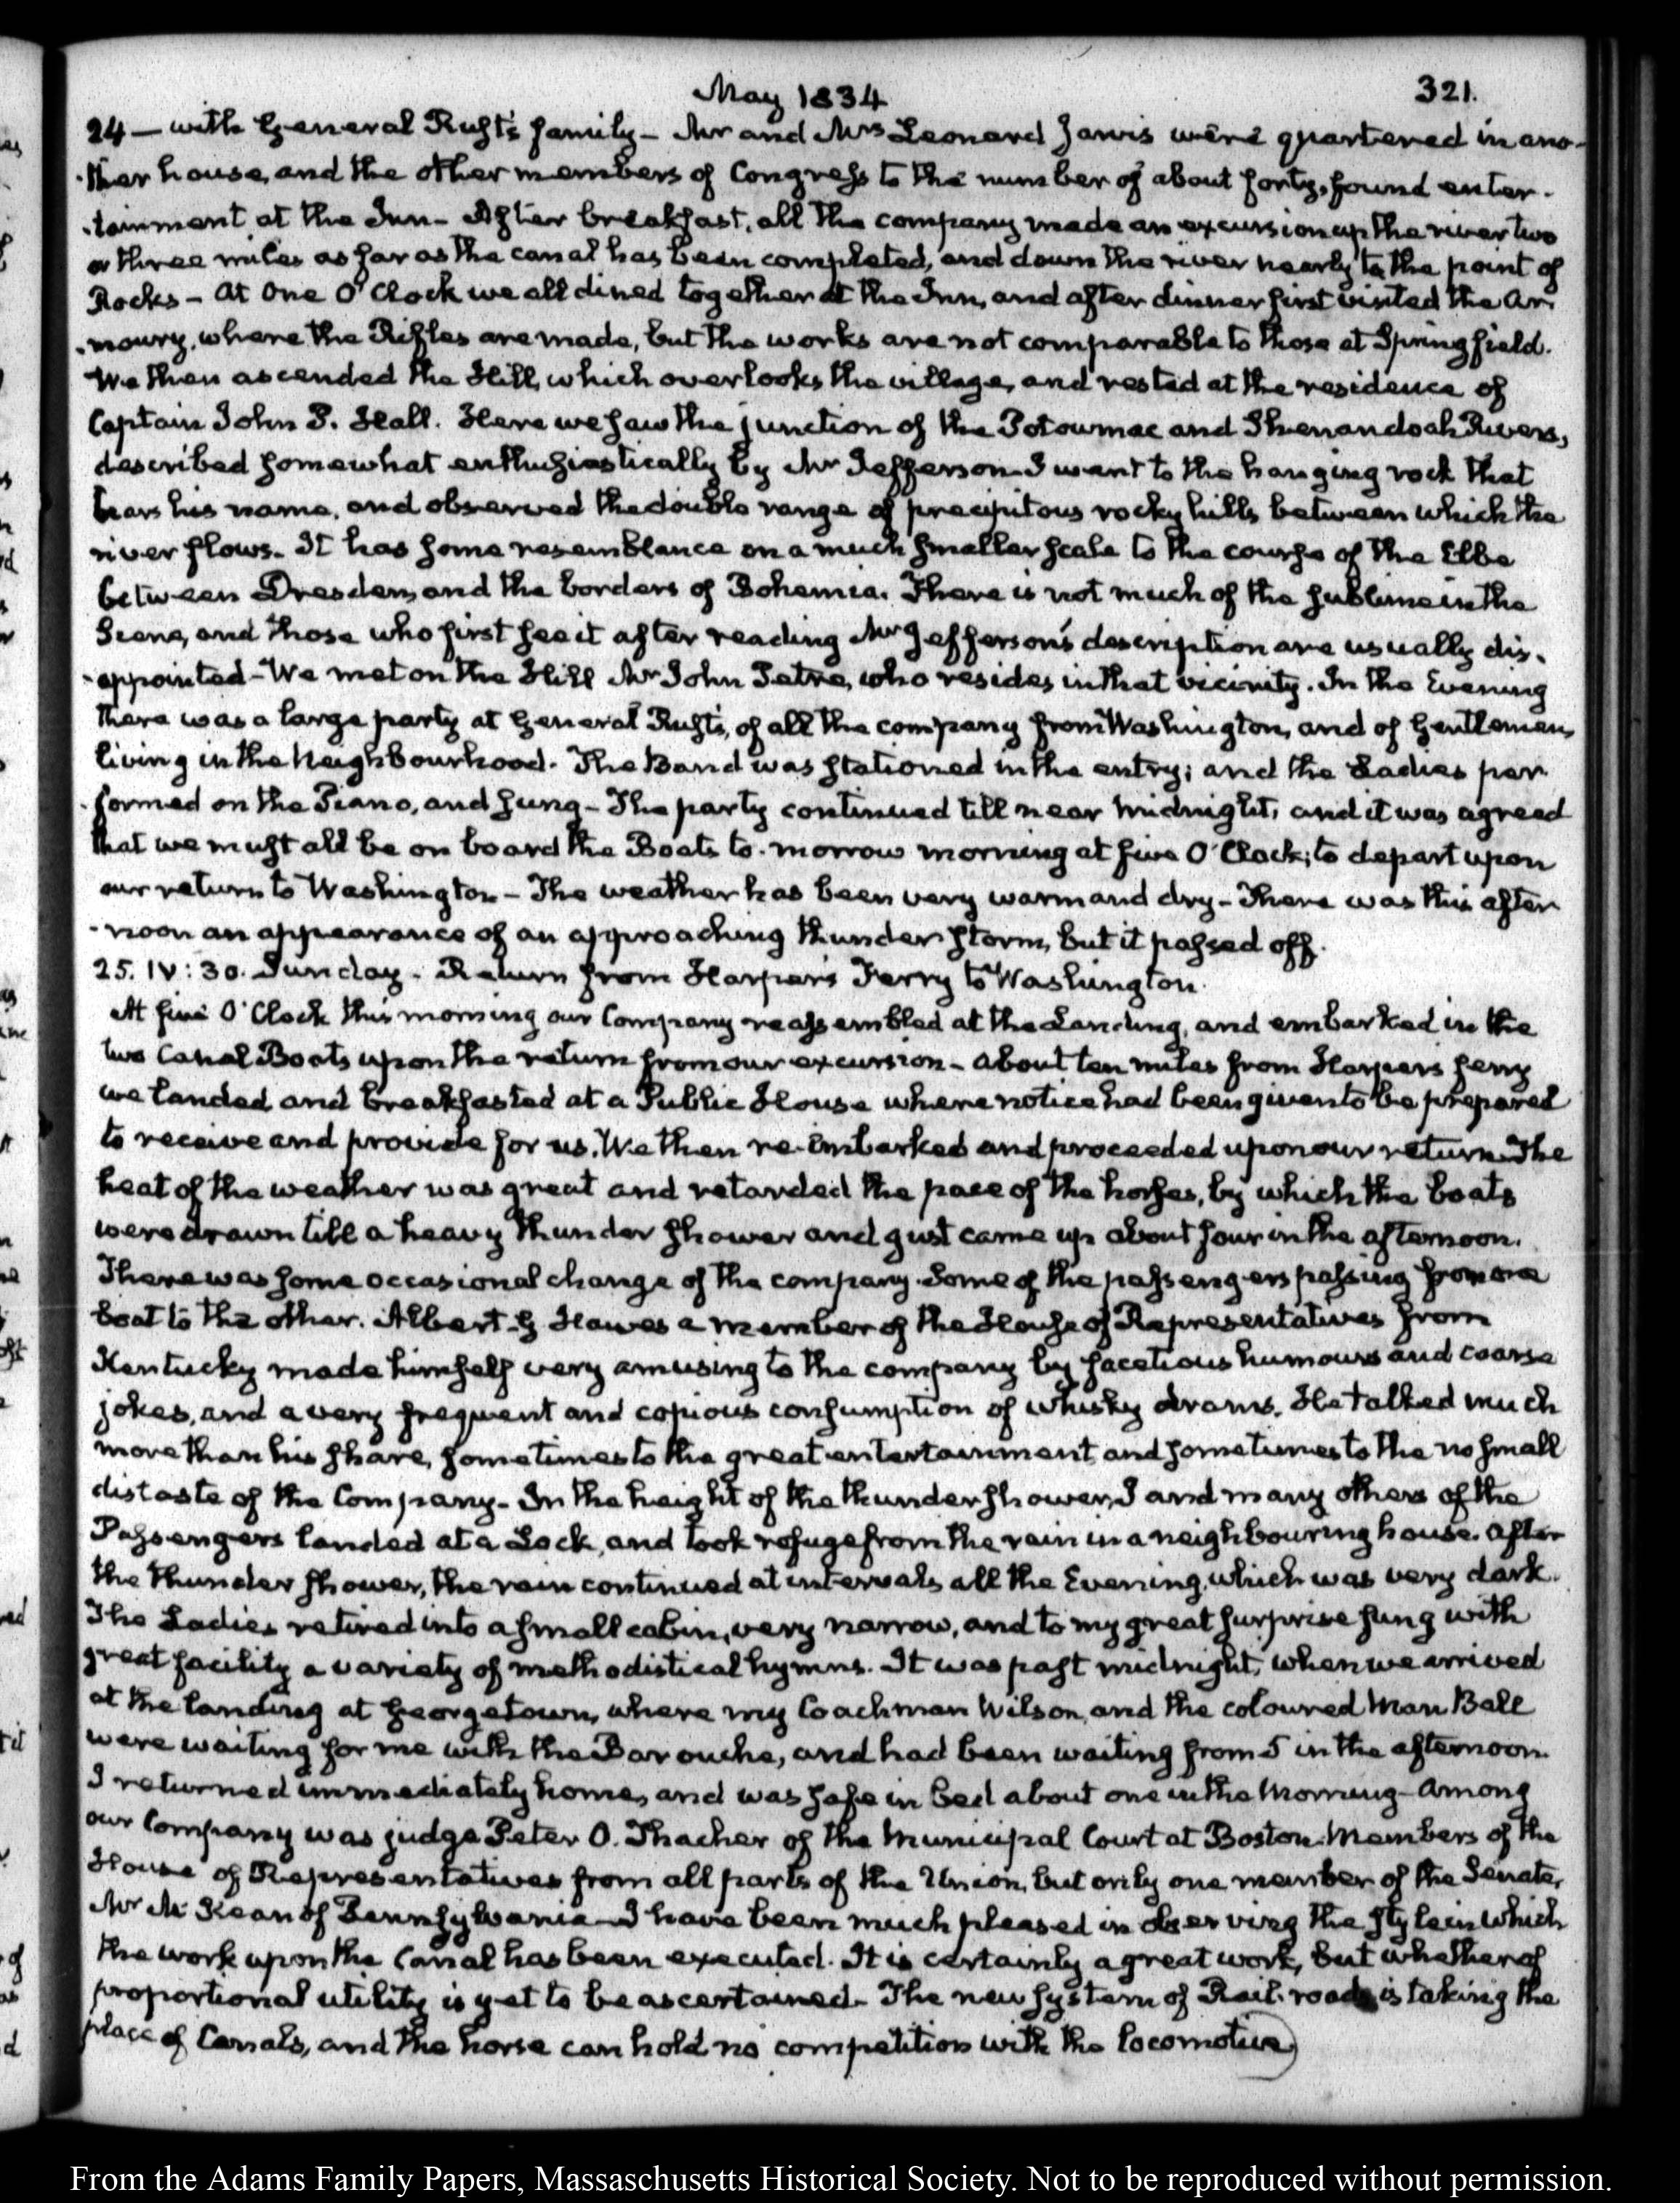 May 1834
321.
24 — with General Rust's family — Mr and Mrs Leonard Jarvis were quartered in ano-
-ther house, and the other members of Congress to the number of about forty, found enter-
-tainment at the Inn — After breakfast, all the company made an excursion up the river two
or three miles as far as the canal has been completed, and down the river nearly to the point of
Rocks — At One O'Clock we all dined together at the Inn, and after dinner first visited the Ar-
-moury, where the Rifles are made, but the works are not comparable to those at Springfield.
We then ascended the Hill, which overlooks the village, and rested at the residence of
Captain John P. Hall. Here we saw the junction of the Potowmac and Shenandoah Rivers,
described somewhat enthusiastically by Mr Jefferson — I went to the hanging rock that
bears his name, and observed the double range of precipitous rocky hills between which the
river flows — It has some resemblance on a much smaller scale to the course of the Elbe
between Dresden, and the borders of Bohemia. There is not much of the sublime in the
Scene, and those who first see it after reading Mr Jefferson's description are usually dis-
-appointed — We met on the Hill Mr John Peter, who resides in that vicinity. In the Evening
there was a large party at General Rust's, of all the company from Washington, and of Gentlemen,
living in the Neighbourhood. The Band was stationed in the entry; and the Ladies per-
-formed on the Piano, and sung — The party continued till near midnight, and it was agreed
that we must all be on board the Boats to-morrow morning at five O'Clock; to depart upon
our return to Washington — The weather has been very warm and dry — There was this after-
-noon an appearance of an approaching thunder storm, but it passed off.
25. IV: 30. Sunday. Return from Harper's Ferry to Washington.
At five O'Clock this morning our Company reassembled at the Landing, and embarked in the
two Canal Boats upon the return from our excursion — about ten miles from Harpers ferry
we landed and breakfasted at a Public House where notice had been given to be prepared
to receive and provide for us. We then re-embarked and proceeded upon our return. The
heat of the weather was great and retarded the pace of the horses, by which the boats
were drawn till a heavy thunder shower and gust came up about four in the afternoon.
There was some occasional change of the company. Some of the passengers passing from one
boat to the other. Albert G Hawes a member of the House of Representatives from
Kentucky made himself very amusing to the company by facetious humours and coarse
jokes, and a very frequent and copious consumption of whisky drams. He talked much
more than his share, sometimes to the great entertainment and sometimes to the no small
distaste of the Company — In the height of the thunder shower, I and many others of the
Passengers landed at a Lock, and took refuge from the rain in a neighbouring house. After
the thunder shower, the rain continued at intervals all the Evening, which was very dark.
The Ladies retired into a small cabin, very narrow, and to my great surprise sung with
great facility a variety of methodistical hymns. It was past midnight, when we arrived
at the landing at Georgetown, where my Coachman Wilson, and the coloured Man Ball
were waiting for me with the Barouche, and had been waiting from 5 in the afternoon.
I returned immediately home, and was safe in bed about one in the Morning — Among
our Company was judge Peter O. Thacher of the Municipal Court at Boston. Members of the
House of Representatives from all parts of the Union, but only one member of the Senate,
Mr McKean of Pennsylvania — I have been much pleased in observing the style in which
the work upon the Canal has been executed. It is certainly a great work, but whether of
proportional utility is yet to be ascertained — The new system of Rail-roads is taking the
place of Canals, and the horse can hold no competition with the locomotive
From the Adams Family Papers, Massachusetts Historical Society. Not to be reproduced without permission.